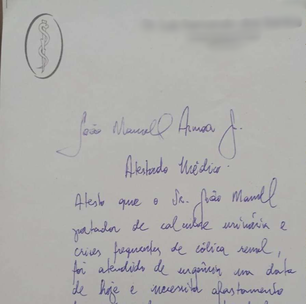 João Manoel J.
Atestado Médico.
Atesto que o Sr. João Manoel
portador de calculose urinária e
crises frequentes de cólica renal,
foi atendido de urgência na data
de hoje e necessita afastamento